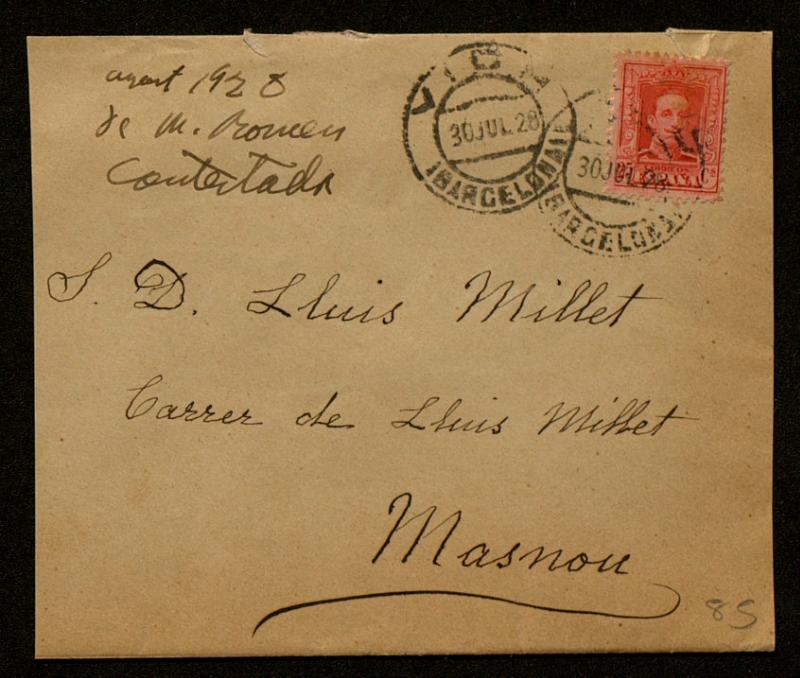 agost 1928
de M. Romeu
Contestada
VICH
30 JUL. 28
(BARCELONA)
30 JUL 28
(BARCELONA)
S. D. Lluis Millet
Carrer de Lluis Millet
Masnou
85